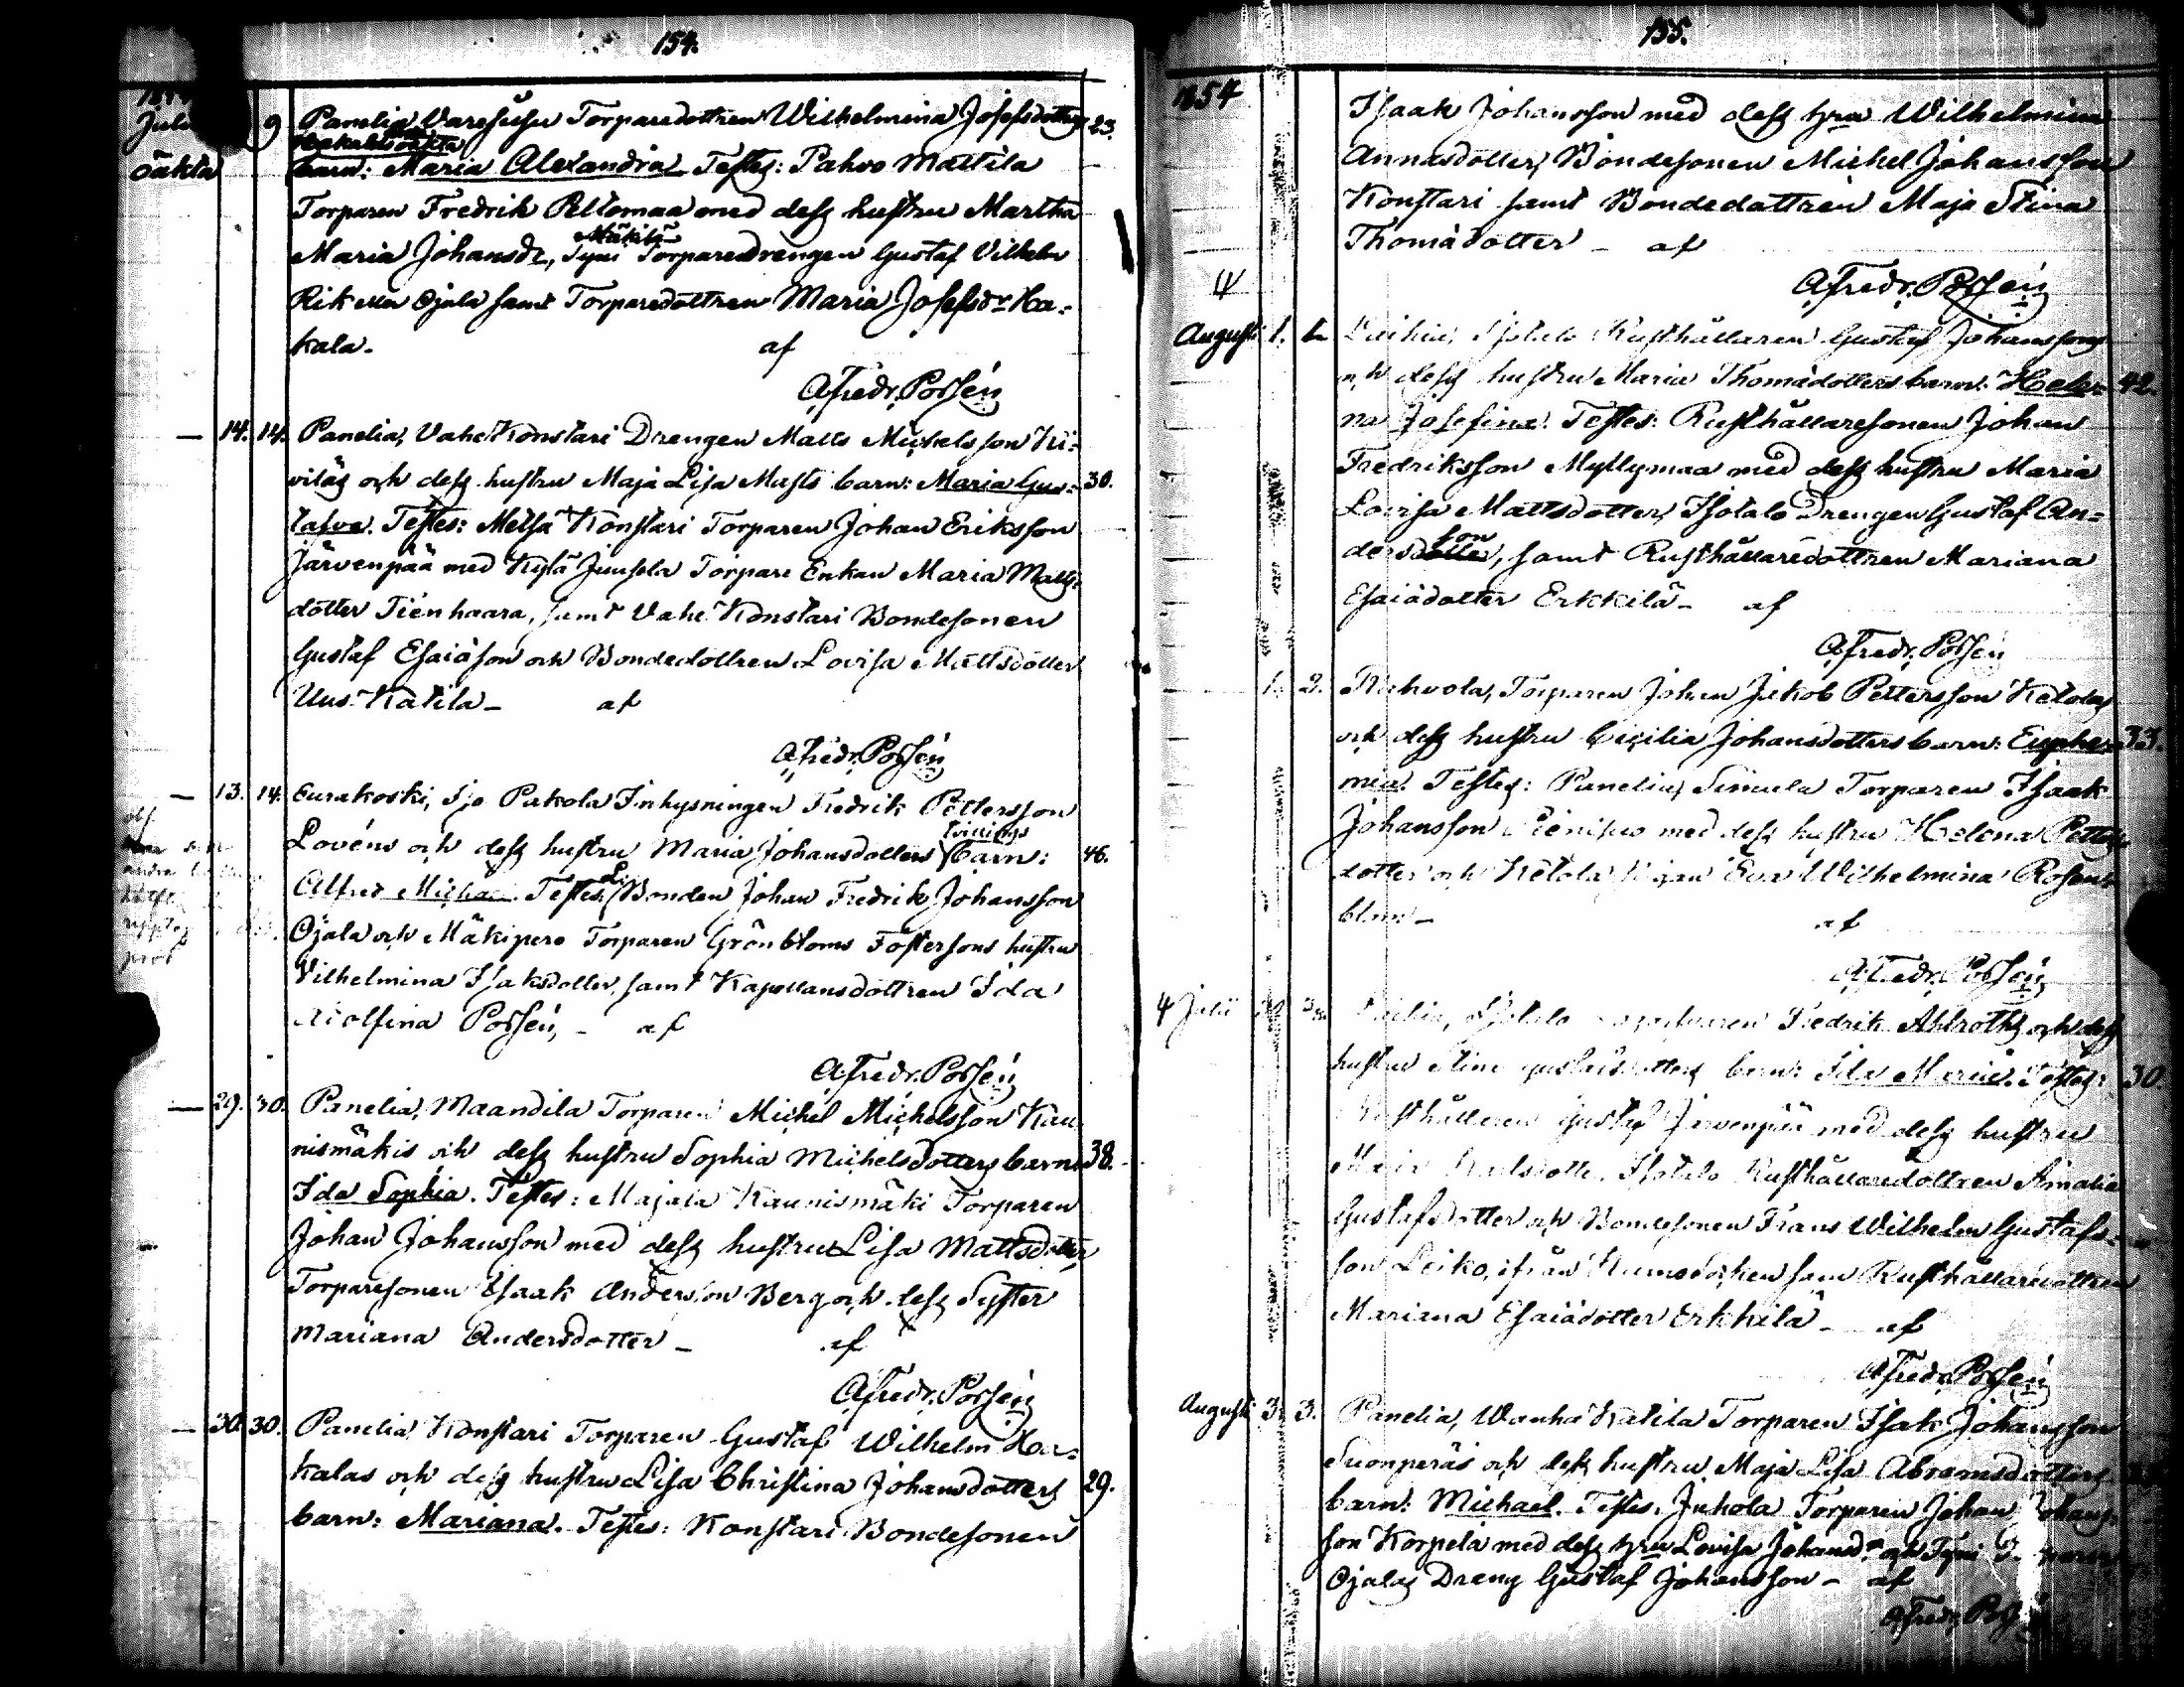 154.
Juli 9 Panelia, Varesusu Torparedottren Wilhelmina Josefsdotters 23.
oäkta
barn: Maria Alexandra. Testes: Pahvo Mattila
Torparen Fredrik Peltomaa med dess hustru Martha
Mäkilä
Maria Johansdr, Tyni Torparedrengen Gustaf Vilhelm
Rikken Ojala samt Torparedottren Maria Josefsdr Ha-
kala. af
A. Fredr. Possén
14. 14. Panelia, Vahe Konstari Drengen Matts Michelsson Ki-
viläs och dess hustru Maja Lisa Matts barn: Maria Gus- 30.
tafva. Testes: Metsä Konstari Torparen Johan Eriksson
Järvenpää med Kylä Juusela Torpare Enkan Maria Matts-
dotter Tienhaara, samt Vahe Konstari Bondesonen
Gustaf Esaiason och Bondedottren Lovisa Mattsdotter
Uus-Katila - af
A. Fredr. Possén
13. 14. Eurakoski, Sjo Pakola Inhysningen Fredrik Pettersson
tvillings
Lovéns och dess hustru Maria Johansdotters barn: 46.
Alfred Michael. Testes: Bonden Johan Fredrik Johansson
Ojala och Mäkipere Torparen Grönbloms Fostersons hustru
Vilhelmina Isaksdotter, samt Kapellansdottren Ida
Adolfina Possén, - af
A. Fredr. Possén
29. 30. Panelia, Maandila Torparen Michel Michelsson Kau-
nismäkis och dess hustru Sophia Michelsdotters barn: 38.
Ida Sophia. Testes: Majala Kaunismäki Torparen
Johan Johansson med dess hustru Lisa Mattsdotter,
Torparesonen Isaak Andersson Berg och dess Syster
Mariana Andersdotter - af
A. Fredr. Possén
30. 30. Panelia Konstari Torparen Gustaf Wilhelm Ha-
kalas och dess hustru Lisa Christina Johansdotters 29.
barn: Mariana. Testes: Konstari Bondesonen
155.
1854
Isaak Johansson med dess hru Wilhelmina
Annasdotter, Bondesonen Michel Johansson
Konstari samt Bondedottren Maja Stina
Thomädotter - af
A. Fredr. Possén
Augusti 1. Isotalo Rusthållaren Gustaf Johanssons
och dess hustru Maria Thomädotters barn: Hele- 42.
na Josefina. Testes: Rusthållaresonen Johan
Fredriksson Myllymaa med dess hustru Maria
Lovisa Mattsdotter, Isotalo Drengen Gustaf An-
son
dersdotter, samt Rusthållaredottren Mariana
Esaiädotter Erkkilä - af
A. Fredr. Possén
1. 2. Torparen Johan Jakob Pettersson Ketolas
och dess hustru Cicilia Johansdotters barn: Euphe- 33.
mia. Testes: Panelia, Simula Torparen Isaak
Johansson med dess hustru Helena Petters-
dotter och Ketola Eva Wilhelmina Rosen-
blom - af
A. Fredr. Possén
4 Julii Isotalo Fredrik Ahlroths och dess
hustru Stina barn: Ida Maria. Testes: 30.
Rusthållaren Gustaf Järvenpää med dess hustru
Maja Karlsdotter, Isotalo Rusthållaredottren Amalia
Gustafsdotter och Bondesonen Frans Wilhelm Gustafs-
son Leiko, ifrån Kumo socken samt Rusthållaredottren
Mariana Esaiädotter Erkkilä - af
A. Fredr. Possén
Augusti 3. 3. Panelia, Wanha Katila Torparen Isak Johansson
Suonperäs och dess hustru Maja Lisa Abramsdotters
barn: Michael. Testes: Juhola Torparen Johan Johans-
son Korpela med dess hru Lovisa Johansdr och Tyni
Ojalas Dreng Gustaf Johansson - af
A. Fredr. Possén